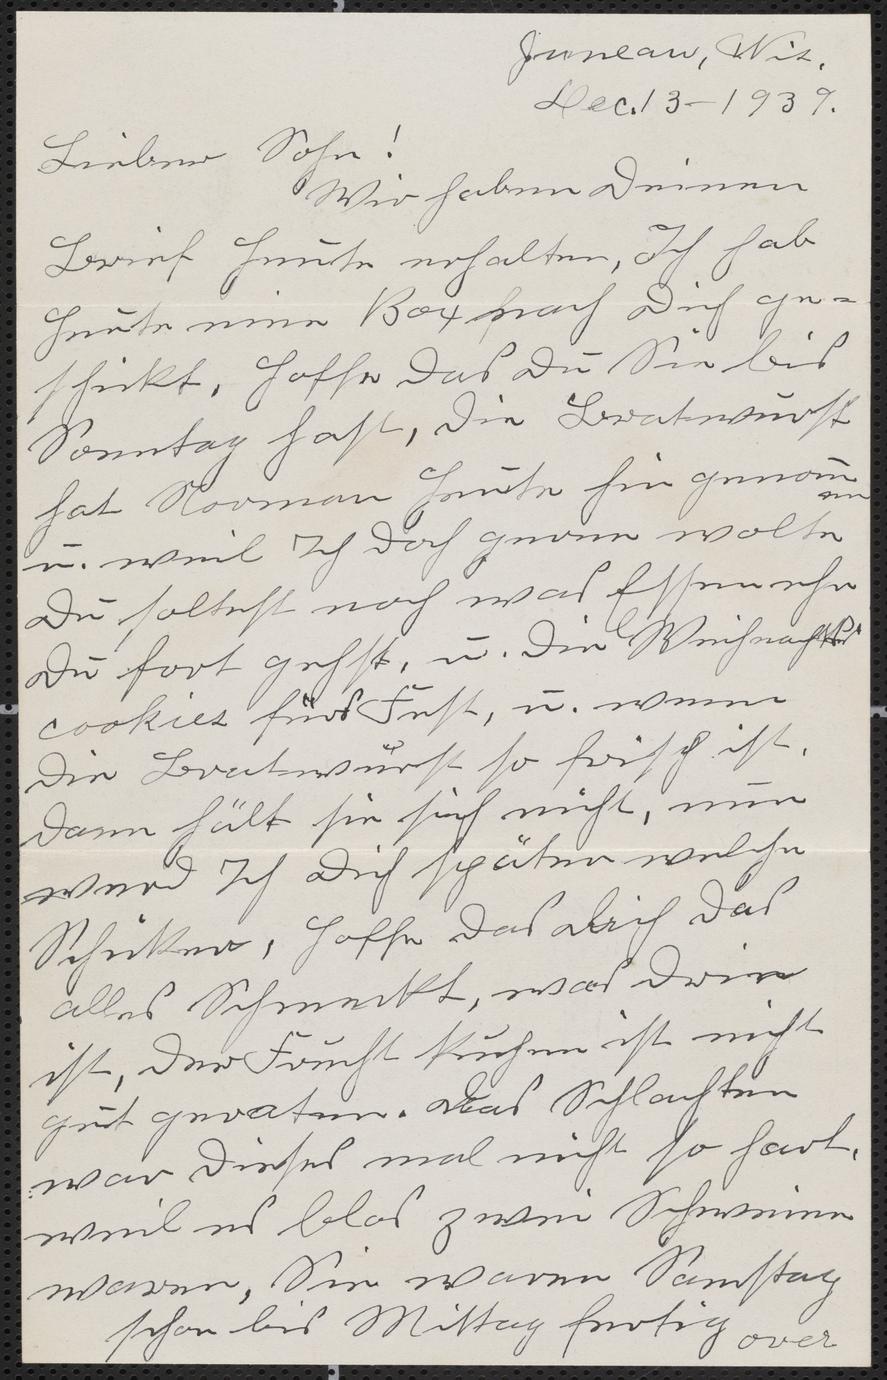 Juneau, Wis.
Dec. 13 – 1939.
Lieber Sohn!
Wir haben Deinen
Brief heute erhalten, Ich hab
heute eine Box nach Dich ge=
schikt, hoffe das Du Sie bis
Sonntag hast, die Bratwurst
hat Norman heute hin genom̄
en
u. weil Ich doch gerne wolte
Du soltest noch was Essen ehe
Du fort gehst, u. die Weihnachts
cookies fürs Fest, u. wenn
die Bratwurst so frisch ist.
dann hält sie sich nicht, nun
werd Ich Dich später welche
Schiken, hoffe das Dich das
alles Schmeckt, was drin
ist, der Frucht Kuchen ist nicht
gut geraten. Das Schlachten
war dieses mal nicht so hart.
weil es blos zwei Schweine
waren, Sie waren Samstag
schon bis Mittag fertig over